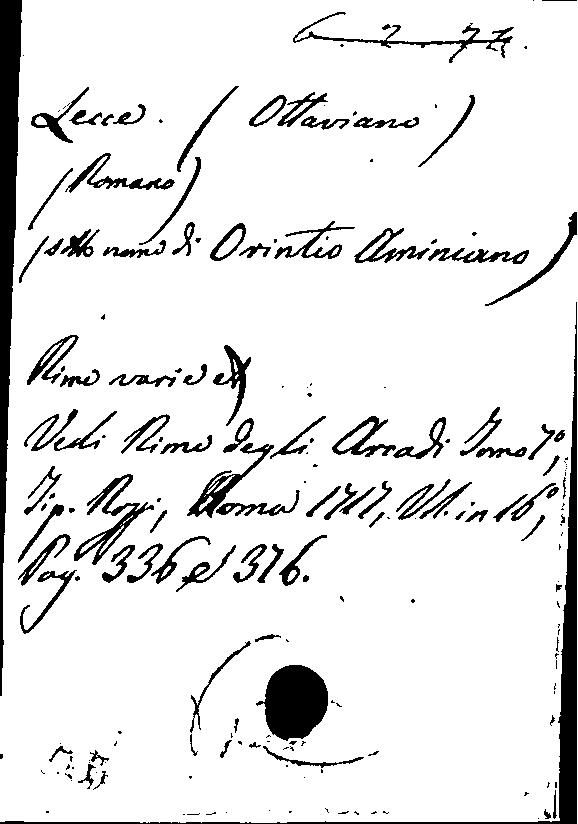 6. 2. 7
Lecce. (Ottaviano)
(Romano)
(sotto nome di Orintio Aminiano)
Rime varie
Vedi Rime degli Arcadi Tomo 7º,
Tip. Rossi, Roma 1717, Vol. in 16º,
Pag. 336 e 376.